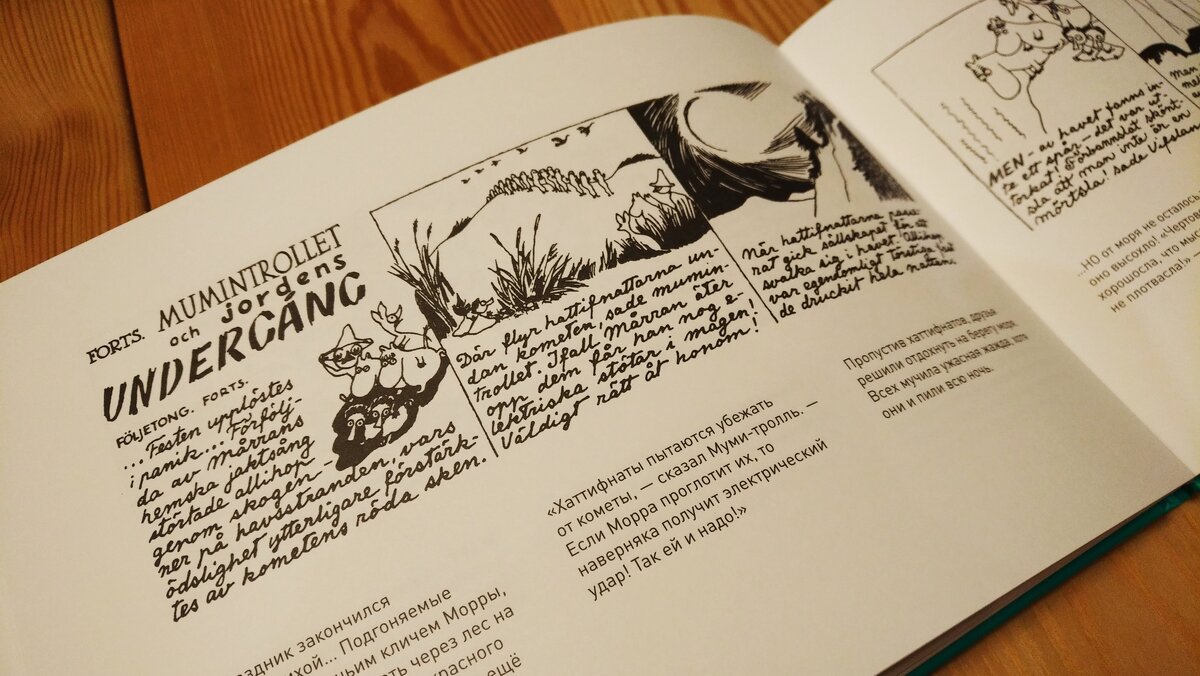 FORTS. MUMINTROLLET
och jordens
UNDERGÅNG
FÖLJETONG. FORTS.
... Festen upplöstes
i panik... Förfölj-
da av mårrans
hemska jaktsång
störtade allihop
genom skogen -
ner på havsstranden, vars
ödslighet ytterligare förstärk-
tes av kometens röda sken.
Där flyr hattifnattarna un-
dan kometen, sade mumin-
trollet. Ifall Mårran äter
opp dem får han nog e-
lektriska stötar i magen!
Väldigt rätt åt honom!
När hattifnattarna passe-
rat gick sällskapet för att
svalka sig i havet. Allihop
var egendomligt törstiga fast
de druckit hela natten.
MEN - av havet fanns in-
te ett spår - det var ut-
torkat! Förbannslat skönt-
sla att man inte är en
mörtsla! sade Vifslan
Man
аздник закончился
ихой... Подгоняемые
ьим кличем Морры,
ть через лес на
красного
ещё
«Хаттифнаты пытаются убежать
от кометы, — сказал Муми-тролль. —
Если Морра проглотит их, то
наверняка получит электрический
удар! Так ей и надо!»
Пропустив хаттифнатов, друзья
решили отдохнуть на берегу моря.
Всех мучила ужасная жажда, хотя
они и пили всю ночь.
...НО от моря не осталось
оно высохло! «Чертов
хорошосла, что мы
не плотвасла!» —